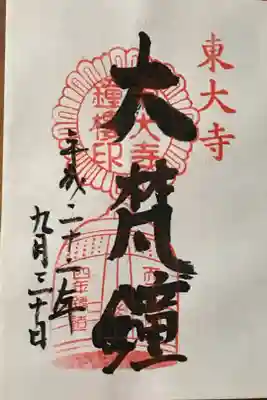 東大寺
大梵鐘
東大寺
鐘樓印
平成二十一年
九月三十日